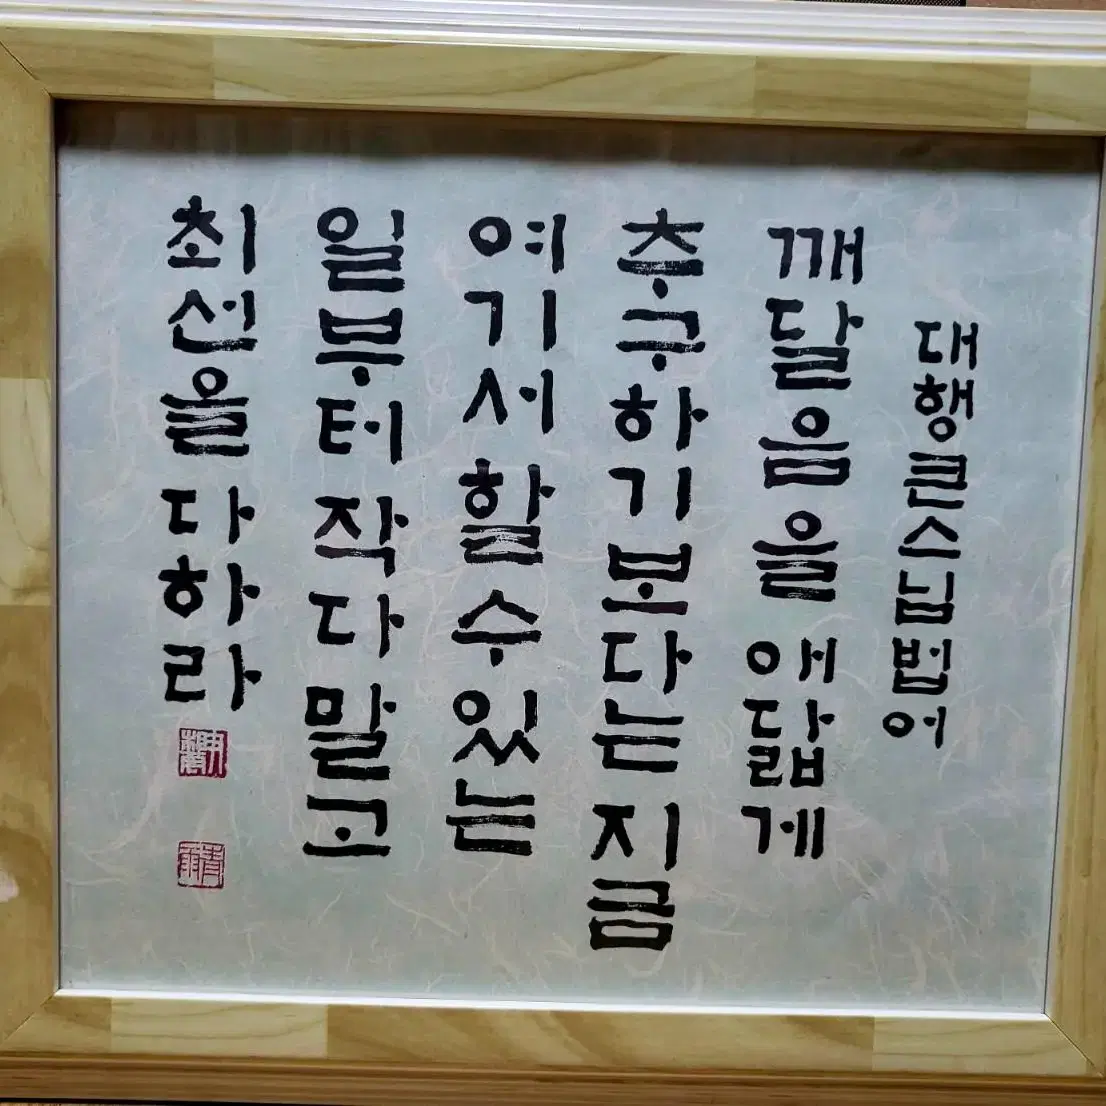 대행큰스님법어
깨달음을 애닯게
추구하기보다는 지금
여기서 할수있는
일부터 작다 말고
최선을 다하라